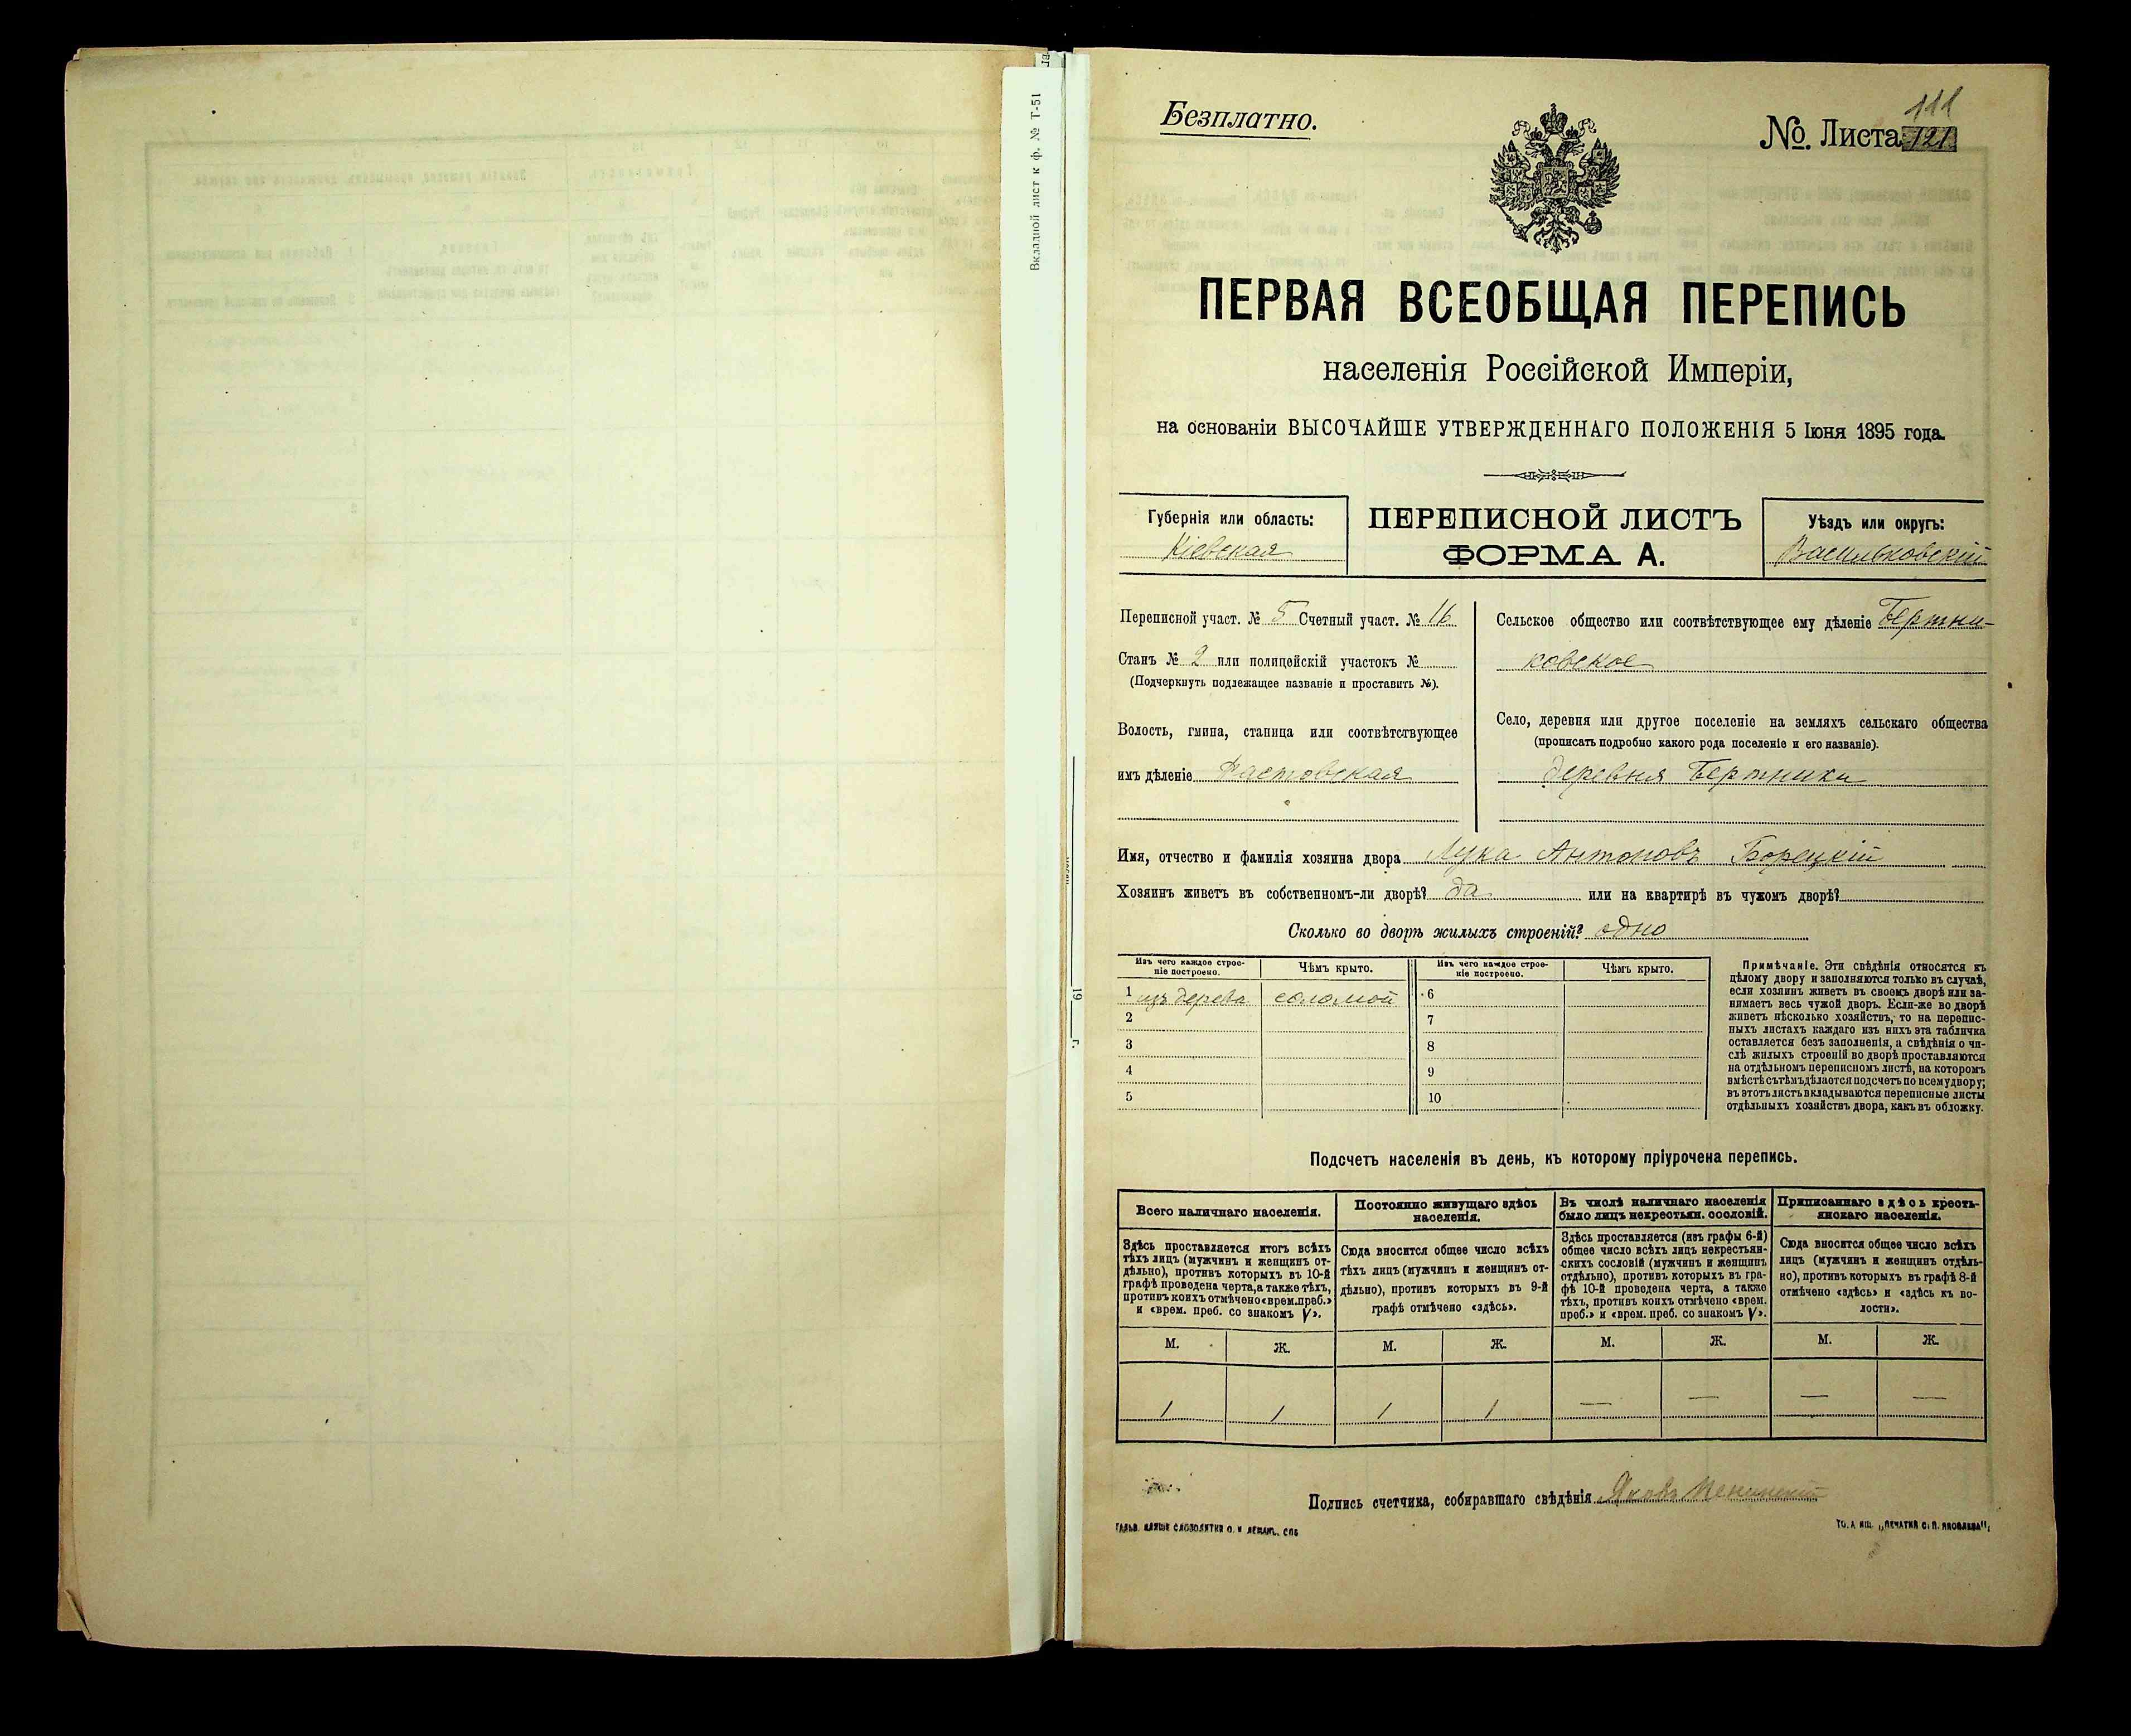 Вкладной лист к ф. № Т-51
19 г.
Безплатно.
111
№. Листа 121
ПЕРВАЯ ВСЕОБЩАЯ ПЕРЕПИСЬ
населенія Россійской Имперіи,
на основаніи ВЫСОЧАЙШЕ УТВЕРЖДЕННАГО ПОЛОЖЕНІЯ 5 Іюня 1895 года.
Губернія или область:
Кіевская
ПЕРЕПИСНОЙ ЛИСТЪ
ФОРМА А.
Уѣздъ или округъ:
Васильковскій
Переписной участ. № 5 Счетный участ. № 16
Станъ № 2 или полицейскій участокъ №
(Подчеркнуть подлежащее названіе и проставить №).
Волость, гмина, станица или соотвѣтствующее
имъ дѣленіе Фастовская
Сельское общество или соотвѣтствующее ему дѣленіе Бертни-
ковское
Село, деревня или другое поселеніе на земляхъ сельскаго общества
(прописать подробно какого рода поселеніе и его названіе).
деревня Бертники
Имя, отчество и фамилія хозяина двора Лука Антоновъ Борецкій
Хозяинъ живетъ въ собственномъ-ли дворѣ? да или на квартирѣ въ чужомъ дворѣ?
Сколько во дворѣ жилыхъ строеній? одно
Изъ чего каждое строе-
ніе построено.
Чѣмъ крыто.
Изъ чего каждое строе-
ніе построено.
Чѣмъ крыто.
1 изъ дерева соломой 6
2 7
3 8
4 9
5 10
Примѣчаніе. Эти свѣдѣнія относятся къ
цѣлому двору и заполняются только въ случаѣ,
если хозяинъ живетъ въ своемъ дворѣ или за-
нимаетъ весь чужой дворъ. Если-же во дворѣ
живетъ нѣсколько хозяйствъ, то на перепис-
ныхъ листахъ каждаго изъ нихъ эта табличка
оставляется безъ заполненія, а свѣдѣнія о чи-
слѣ жилыхъ строеній во дворѣ проставляются
на отдѣльномъ переписномъ листѣ, на которомъ
вмѣстѣ съ тѣмъ дѣлается подсчетъ по всему двору;
въ этотъ листъ вкладываются переписные листы
отдѣльныхъ хозяйствъ двора, какъ въ обложку.
Подсчетъ населенія въ день, къ которому пріурочена перепись.
Всего наличнаго населенія.
Постоянно живущаго здѣсь
населенія.
Въ числѣ наличнаго населенія
было лицъ некрестьян. сословій.
Приписаннаго здѣсь кресть-
янскаго населенія.
Здѣсь проставляется итогъ всѣхъ
тѣхъ лицъ (мужчинъ и женщинъ от-
дѣльно), противъ которыхъ въ 10-й
графѣ проведена черта, а также тѣхъ,
противъ коихъ отмѣчено «врем. преб.»
и «врем. преб. со знакомъ V».
Сюда вносится общее число всѣхъ
тѣхъ лицъ (мужчинъ и женщинъ от-
дѣльно), противъ которыхъ въ 9-й
графѣ отмѣчено «здѣсь».
Здѣсь проставляется (изъ графы 6-й)
общее число всѣхъ лицъ некрестьян-
скихъ сословій (мужчинъ и женщинъ
отдѣльно), противъ которыхъ въ гра-
фѣ 10-й проведена черта, а также
тѣхъ, противъ коихъ отмѣчено «врем.
преб.» и «врем. преб. со знакомъ V».
Сюда вносится общее число всѣхъ
лицъ (мужчинъ и женщинъ отдѣль-
но), противъ которыхъ въ графѣ 8-й
отмѣчено «здѣсь» и «здѣсь къ во-
лости».
М. Ж. М. Ж. М. Ж. М. Ж.
1 1 1 1 — — — —
Подпись счетчика, собиравшаго свѣдѣнія Яковъ